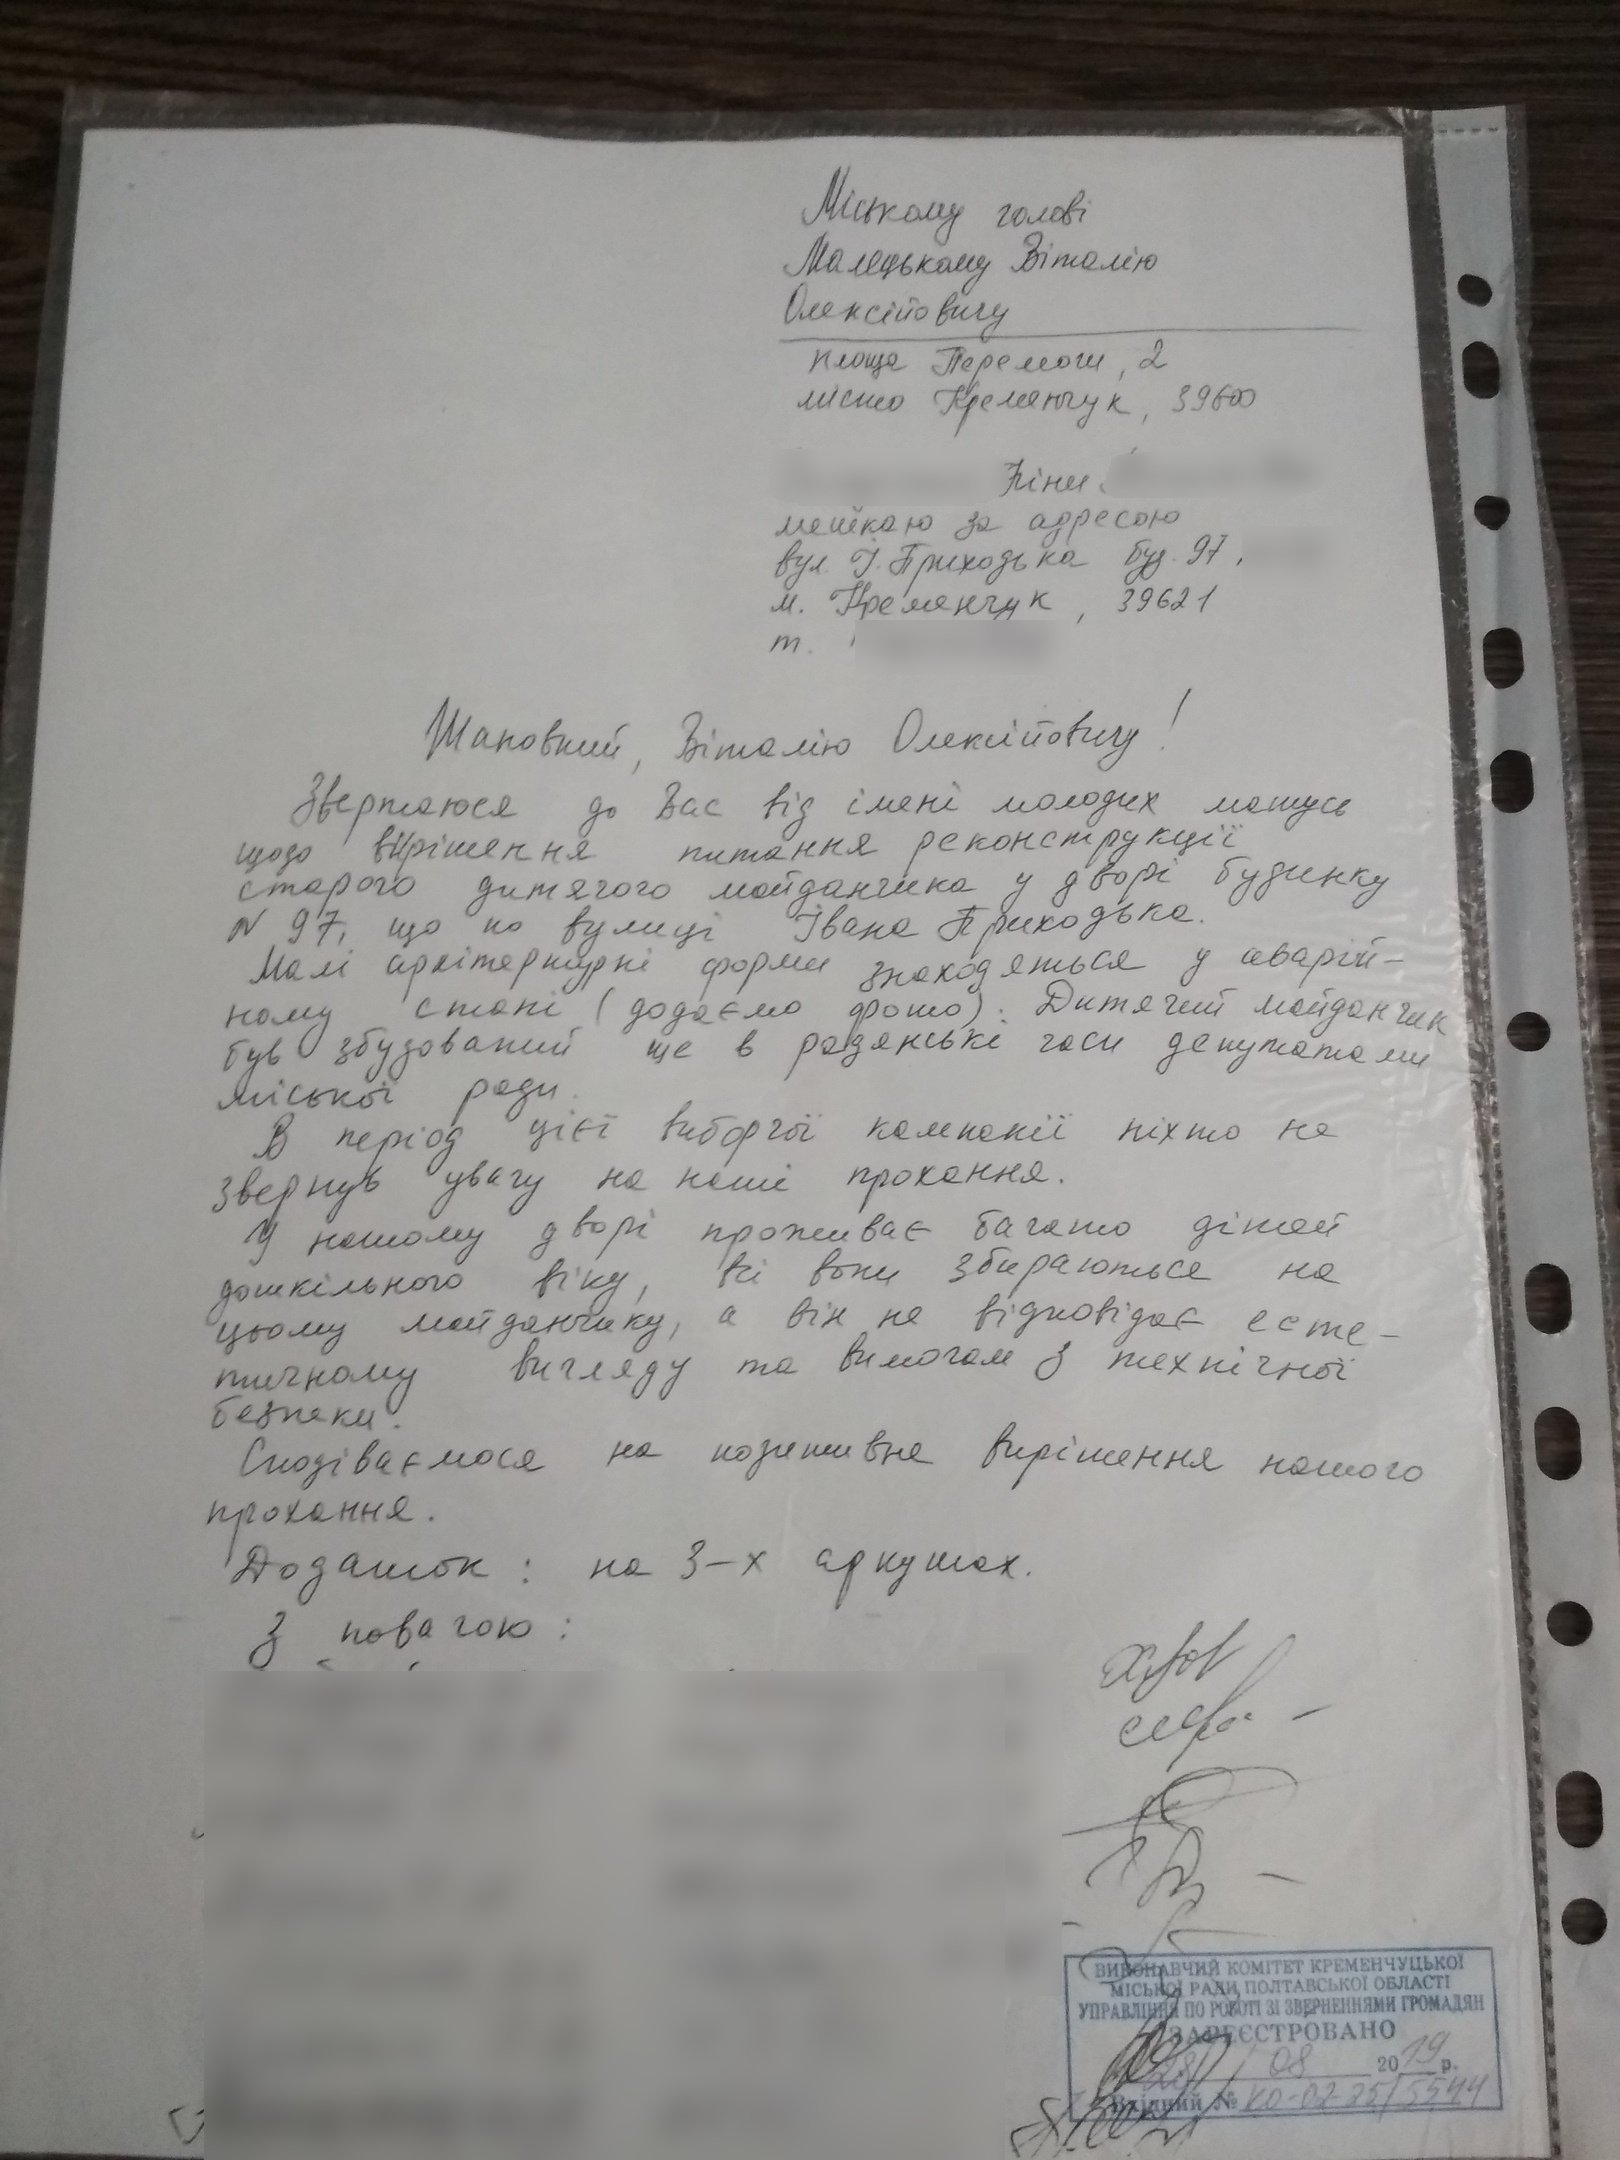 Міському голові
Малецькому Віталію
Олексійовичу
площа Перемоги, 2
місто Кременчук, 39600
Ніни
мешкаю за адресою
вул. І. Приходька буд. 97,
м. Кременчук, 39621
т.
Шановний, Віталію Олексійовичу!
Звертаюся до Вас від імені молодих матусь
щодо вирішення питання реконструкції
старого дитячого майданчика у дворі будинку
N 97, що по вулиці Івана Приходька.
Малі архітектурні форми знаходяться у аварій-
ному стані (додаємо фото). Дитячий майданчик
був збудований ще в радянські часи депутатами
міської ради.
В період цієї виборчої компанії ніхто не
звернув увагу на наші прохання.
У нашому дворі проживає багато дітей
дошкільного віку, всі вони збираються на
цьому майданчику, а він не відповідає есте-
тичному вигляду та вимогам з технічної
безпеки.
Сподіваємося на позитивне вирішення нашого
прохання.
Додаток: на 3-х аркушах.
З повагою:
ВИКОНАВЧИЙ КОМІТЕТ КРЕМЕНЧУЦЬКОЇ
МІСЬКОЇ РАДИ ПОЛТАВСЬКОЇ ОБЛАСТІ
УПРАВЛІННЯ ПО РОБОТІ ЗІ ЗВЕРНЕННЯМИ ГРОМАДЯН
ЗАРЕЄСТРОВАНО
28 08 2019 р.
Вхідний № КО-02-25/5544